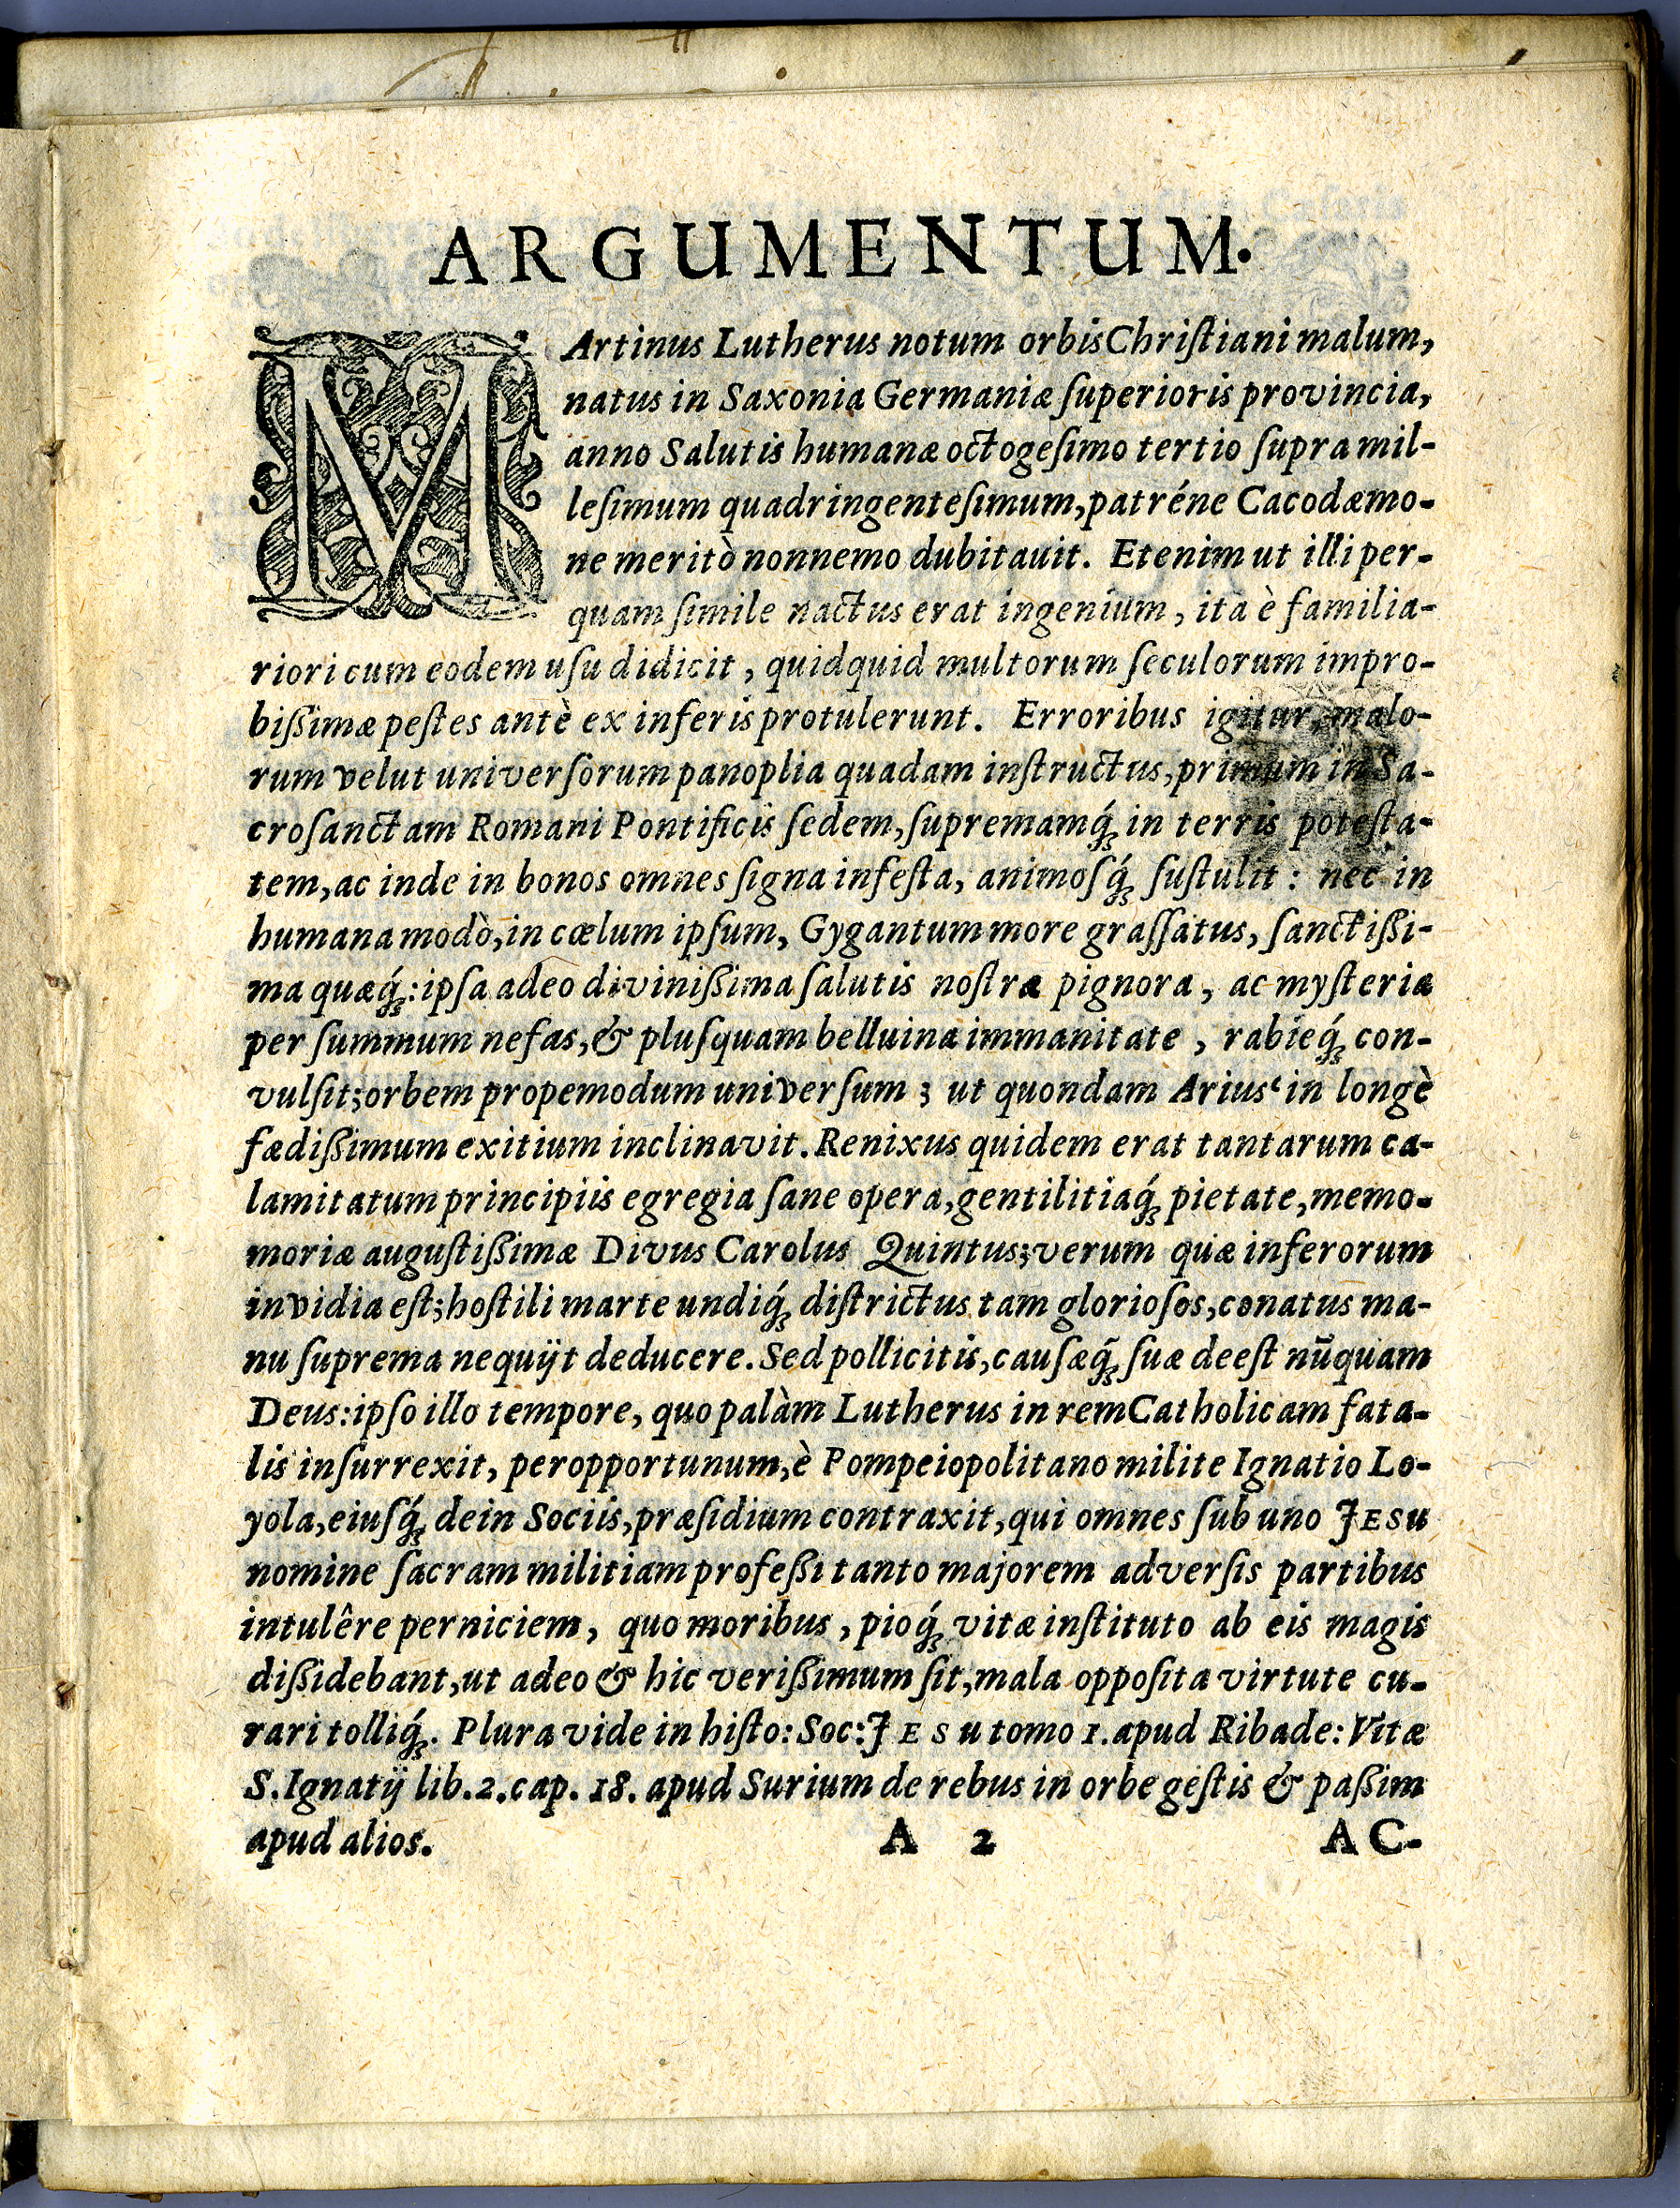 ARGUMENTUM.
MArtinus Lutherus notum orbis Chriſtiani malum,
natus in Saxonia Germaniæ ſuperioris provincia,
anno Salutis humanæ octogeſimo tertio ſupra mil-
leſimum quadringenteſimum, patréne Cacodæmo-
ne meritò nonnemo dubitauit. Etenim ut illi per-
quam ſimile nactus erat ingenium, ita è familia-
riori cum eodem uſu didicit, quidquid multorum ſeculorum impro-
bißimæ peſtes antè ex inferis protulerunt. Erroribus igitur, malo-
rum velut univerſorum panoplia quadam inſtructus, primum in Sa-
croſanctam Romani Pontificis ſedem, ſupremamq́ꝫ in terris poteſta-
tem, ac inde in bonos omnes ſigna infeſta, animoſq́ꝫ ſuſtulit: nec in
humana modò, in cælum ipſum, Gygantum more graſſatus, ſanctißi-
ma quæq́ꝫ: ipſa adeo divinißima ſalutis noſtræ pignora, ac myſteria
per ſummum nefas, & pluſquam belluina immanitate, rabieq́ꝫ con-
vulſit; orbem propemodum univerſum; ut quondam Arius‘ in longè
fædißimum exitium inclinavit. Renixus quidem erat tantarum ca-
lamitatum principiis egregia ſane opera, gentilitiaq́ꝫ pietate, memo-
moriæ auguſtißimæ Divus Carolus Quintus; verum quæ inferorum
invidia eſt; hoſtili marte undiq́ꝫ diſtrictus tam glorioſos, conatus ma-
nu ſuprema nequijt deducere. Sed pollicitis, cauſæq́ꝫ ſuæ deeſt nūquam
Deus: ipſo illo tempore, quo palàm Lutherus in rem Catholicam fata-
lis inſurrexit, peropportunum, è Pompeiopolitano milite Ignatio Lo-
yola, eiuſq́ꝫ dein Sociis, præſidium contraxit, qui omnes ſub uno JESU
nomine ſacram militiam profeßi tanto majorem adverſis partibus
intulêre perniciem, quo moribus, pioq́ꝫ vitæ inſtituto ab eis magis
dißidebant, ut adeo & hic verißimum ſit, mala oppoſita virtute cu-
rari tolliq́ꝫ. Plura vide in hiſto: Soc: JESU tomo 1. apud Ribade: Vitæ
S. Ignatij lib. 2. cap. 18. apud Surium de rebus in orbe geſtis & paßim
apud alios. A 2 AC-